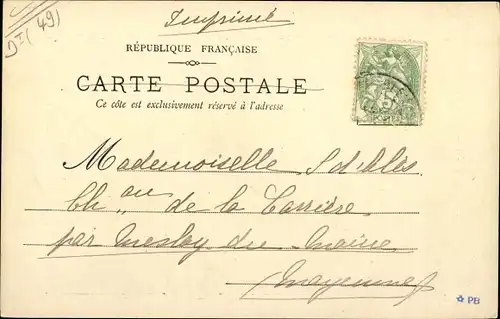 Imprimé
DT (49)
RÉPUBLIQUE FRANÇAISE
CARTE POSTALE
Ce côté est exclusivement réservé à l'adresse
5
POSTES
Mademoiselle
Ch^au de la Carrière
par Meslay du Maine
(Mayenne)
PB